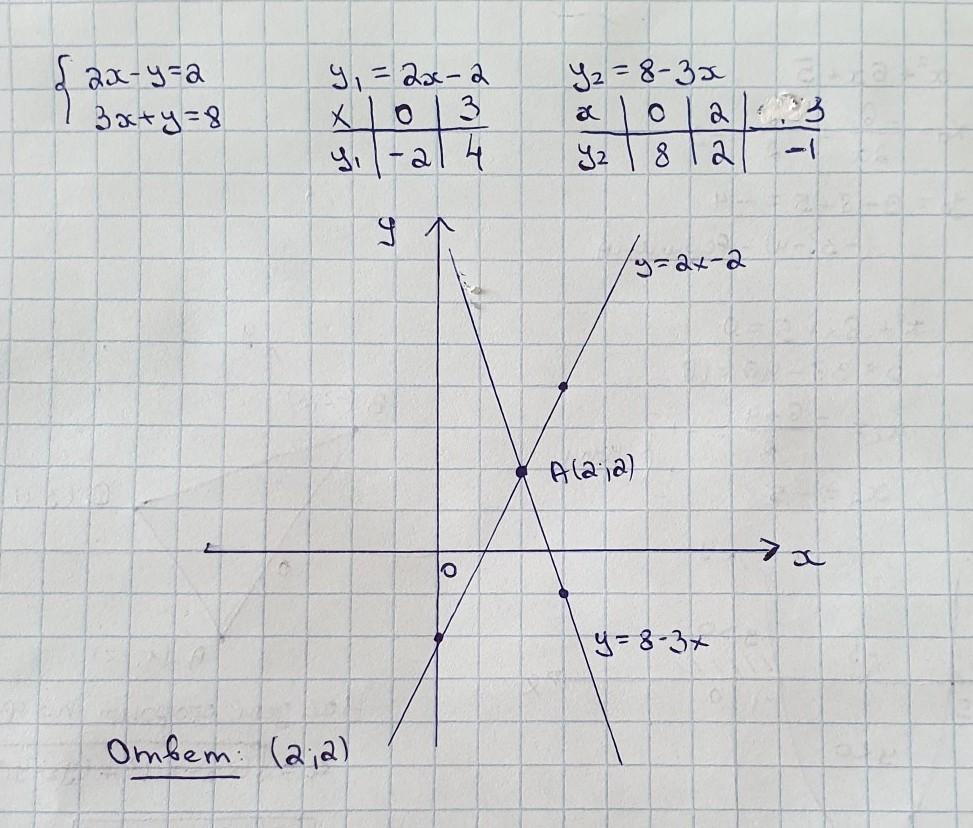 { 2x-y=2
3x+y=8
y₁ = 2x-2
x | 0 | 3
y₁ | -2 | 4
y₂ = 8-3x
x | 0 | 2 | 3
y₂ | 8 | 2 | -1
y
y=2x-2
A(2;2)
0
x
y=8-3x
Ответ: (2;2)